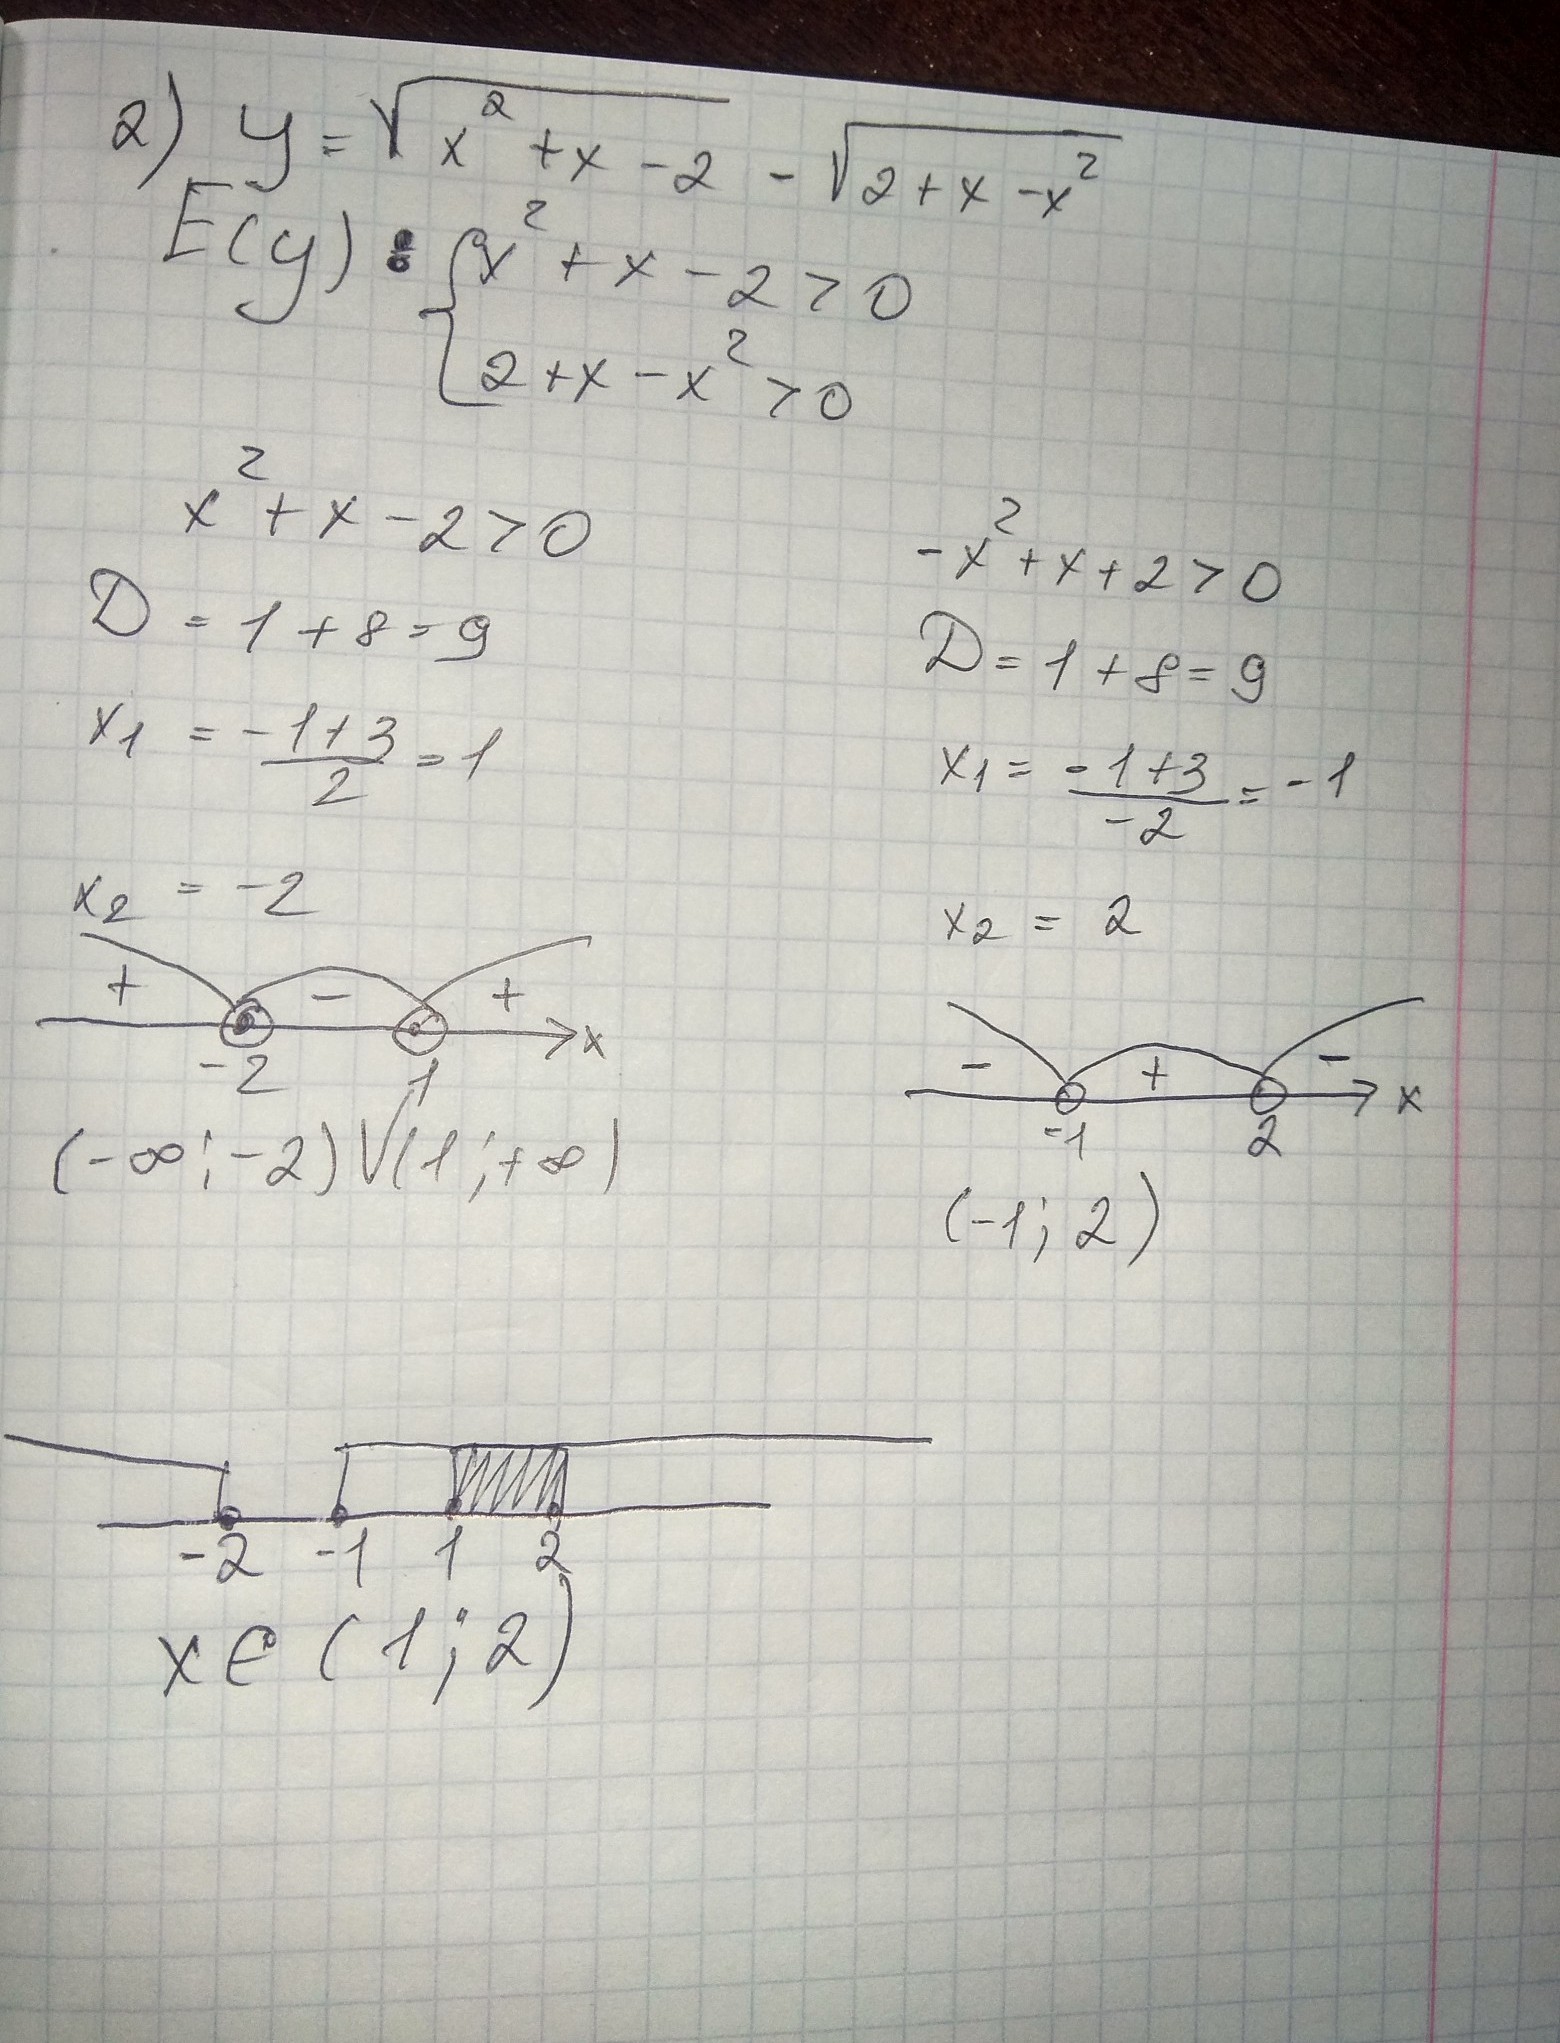 2) y = √(x² + x - 2) - √(2 + x - x²)
E(y) : { x² + x - 2 > 0
2 + x - x² > 0
x² + x - 2 > 0
D = 1 + 8 = 9
x₁ = (-1+3)/2 = 1
x₂ = -2
+ - +
-2 1 x
(-∞; -2) V (1; +∞)
-x² + x + 2 > 0
D = 1 + 8 = 9
x₁ = (-1+3)/-2 = -1
x₂ = 2
- + -
-1 2 x
(-1; 2)
-2 -1 1 2
x ∈ (1; 2)